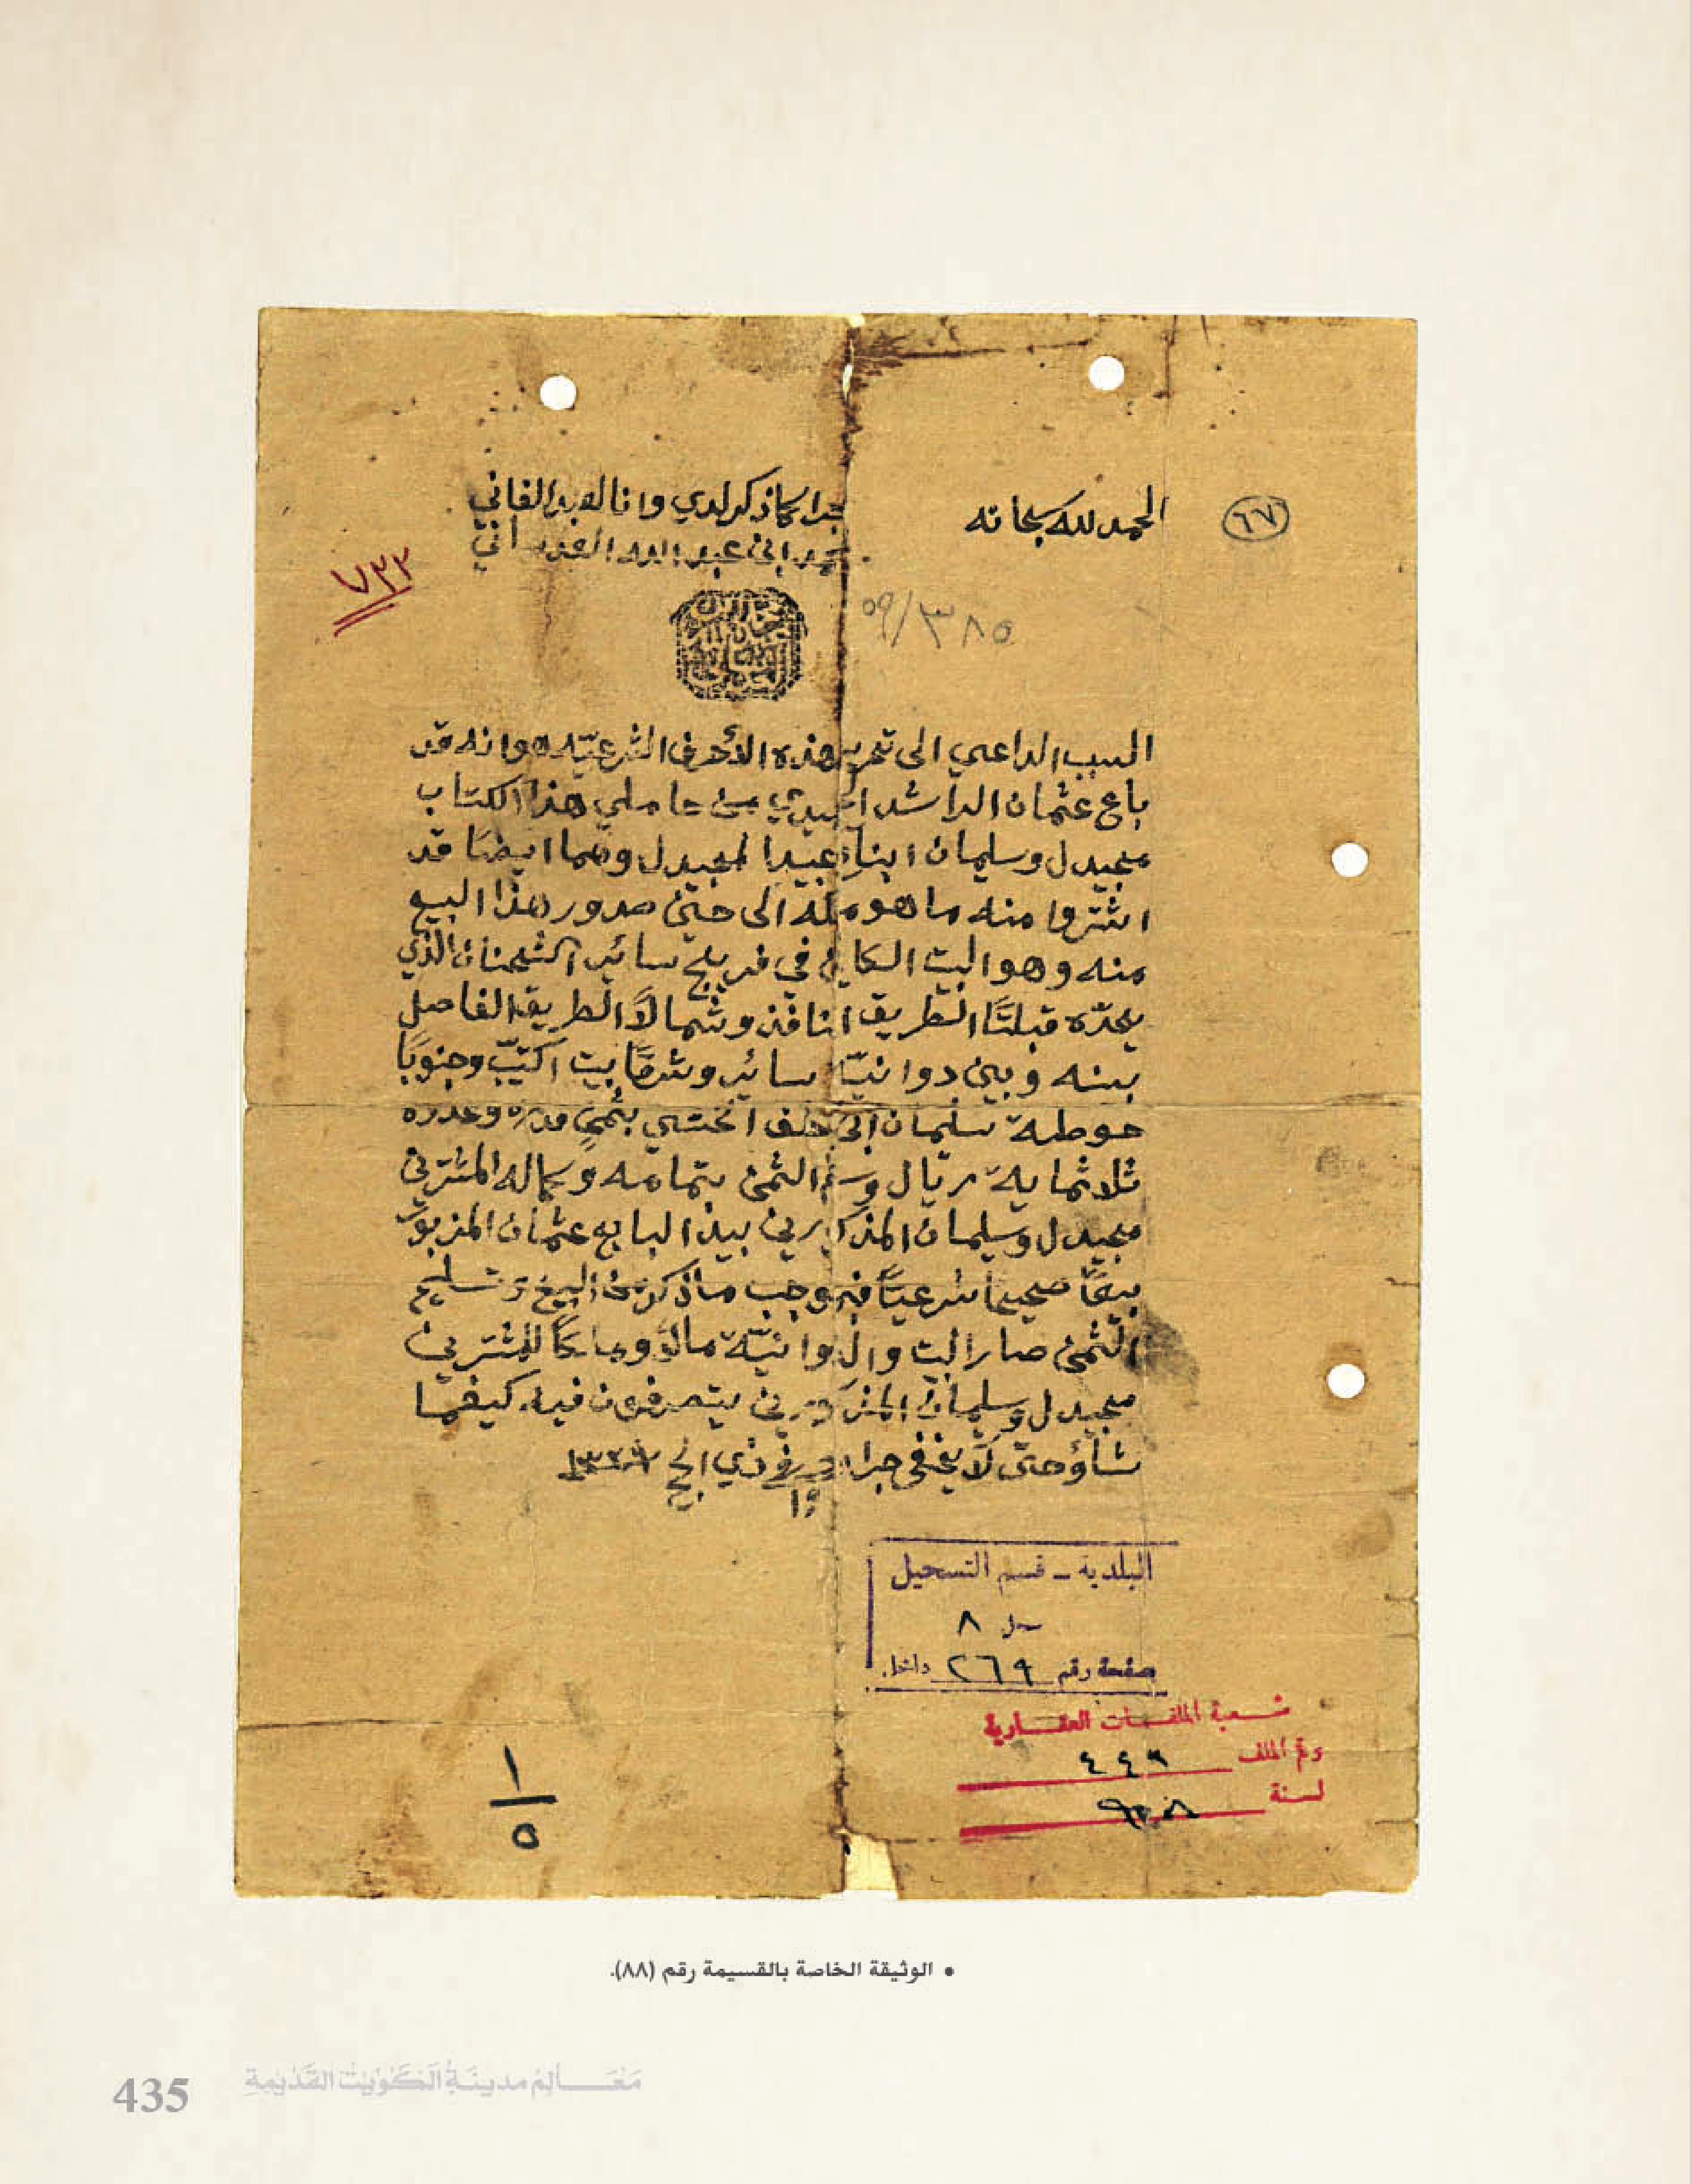 ٦٧
الحمد لله سبحانه
جرا كما ذكر لدي وانا العبد الفاني
محمد ابن عبد الله العدساني
٧٣٢
٥٩/٣٨٥
السبب الداعي الى تحرير هذه الأحرف الشرعيّه هو انه قد
باع عثمان الراشد من حاملي هذا الكتاب
مجيدل وسليمان ابناء عبيد المجيدل وهما ايضًا قد
اشتروا منه ما هو ملكه الى حين صدور هذا البيع
منه وهو البيت الكاين في فريج ساير الشحنان الذي
يحدّه قبلتًا الطريق النافذ وشمالًا الطريق الفاصل
بينه وبين دوانيّة ساير وشرقًا بيت وجنوبًا
حوطة سليمان ابن خلف بثمنٍ قدره وعدده
ثلاثماية ريال وسلم الثمن بتمامه وكماله المشترين
مجيدل وسليمان المذكورين بيد البايع عثمان المزبور
بيعًا صحيحا شرعيًّا فبموجب ما ذكر من البيع وتسليم
الثمن صار البيت والدوانيّة مالًا وملكًا للمشترين
مجيدل وسليمان المذكورين يتصرفون فيه كيفما
شاؤ حتى لا يخفى جرا وحرر في ذي الحج
البلدية - قسم التسجيل
سجل ٨
صفحة رقم ٢٦٩ داخل
شعبة الملفات العقارية
رقم الملف
لسنة
١
٥
• الوثيقة الخاصة بالقسيمة رقم (٨٨).
435 مَعَالِمُ مدينَةِ الكُوَيْت القَدْيمة